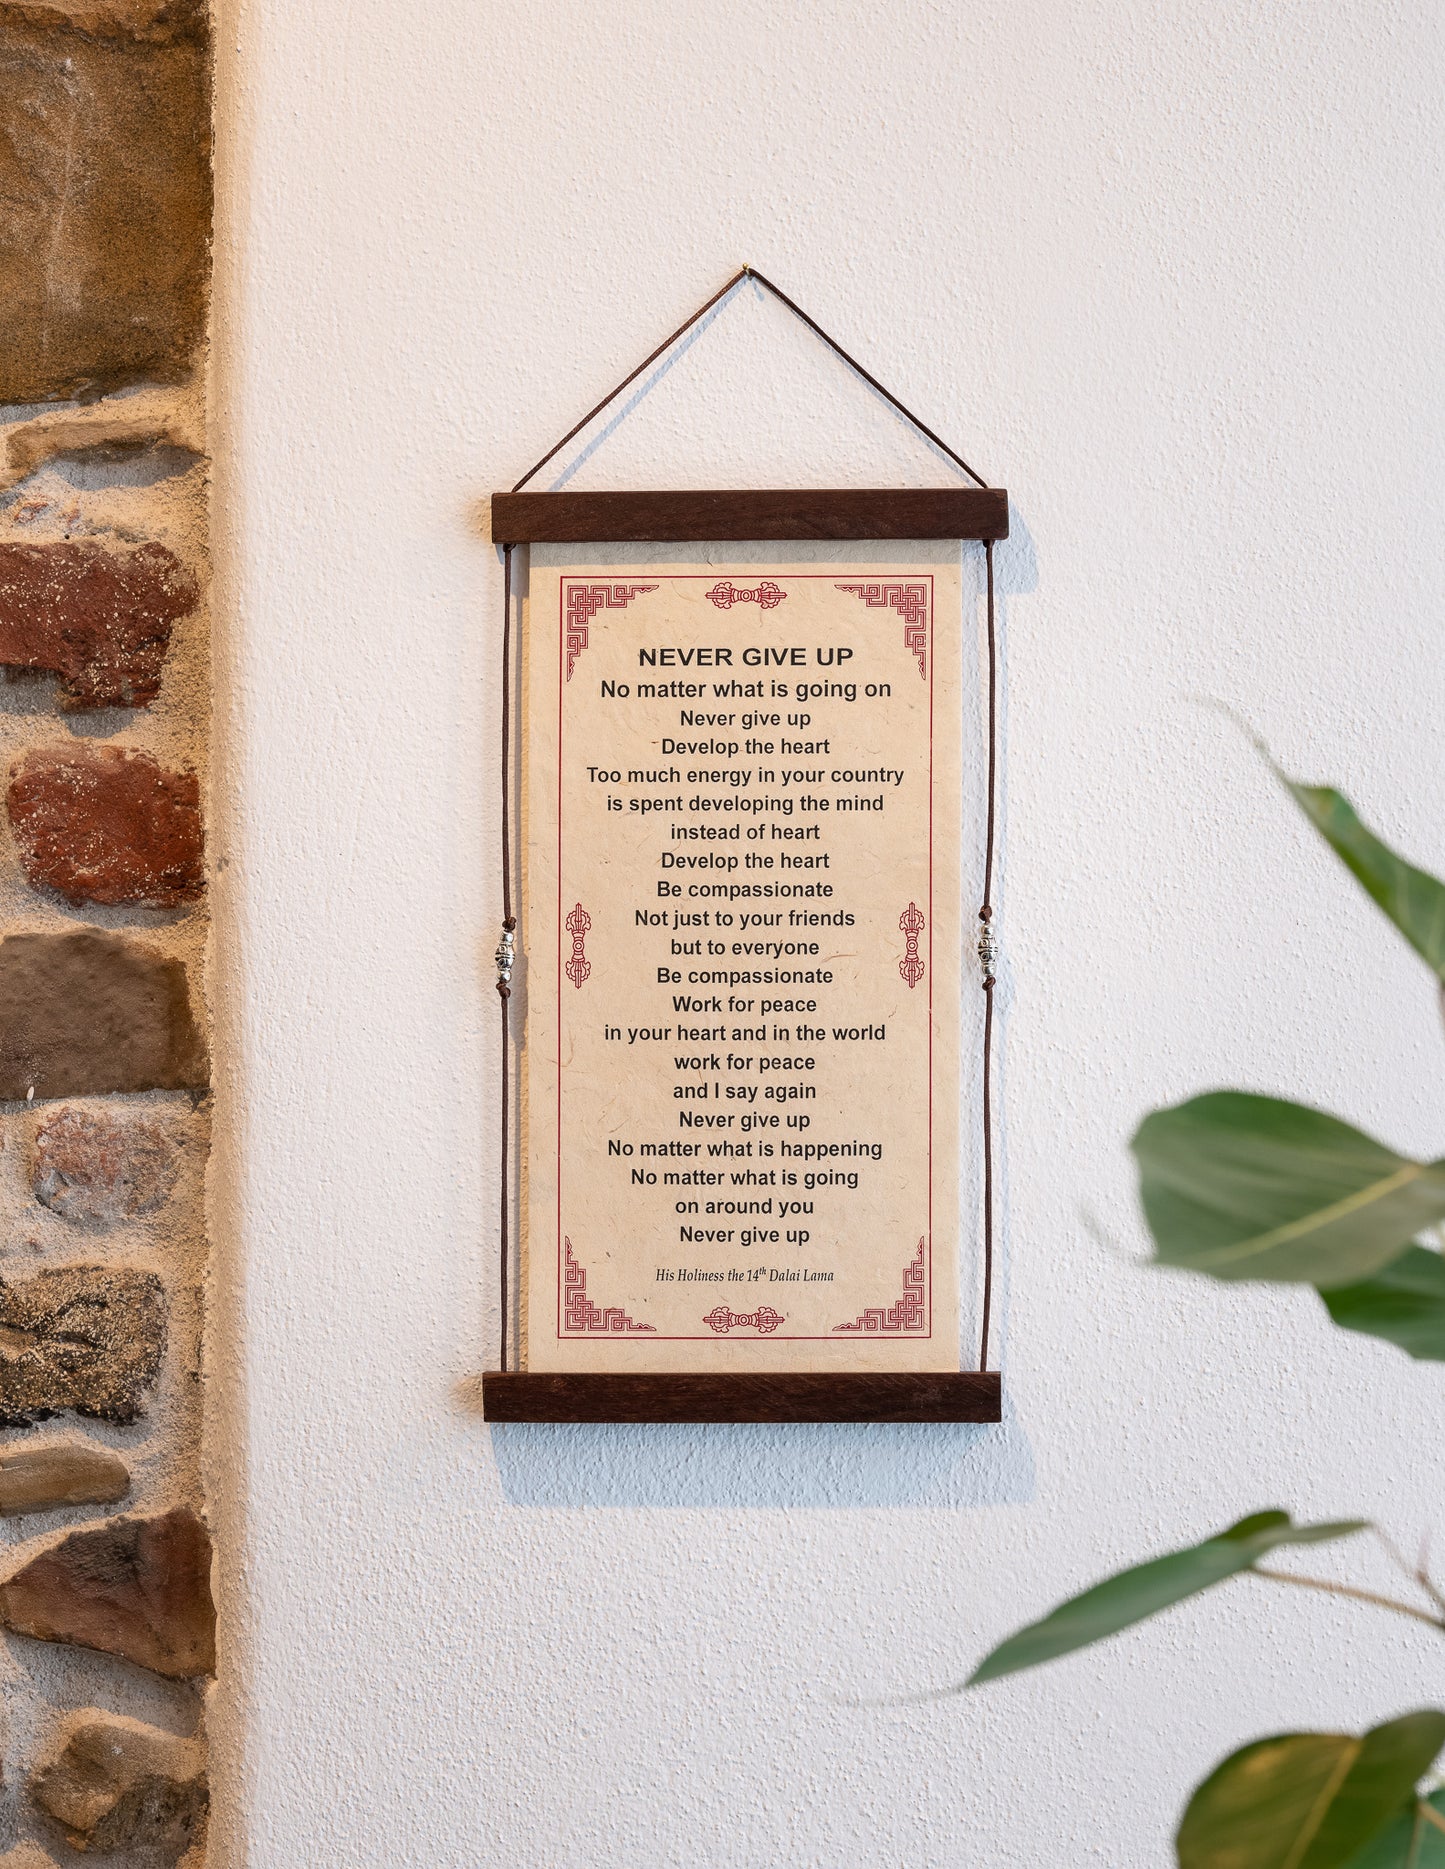 NEVER GIVE UP
No matter what is going on
Never give up
Develop the heart
Too much energy in your country
is spent developing the mind
instead of heart
Develop the heart
Be compassionate
Not just to your friends
but to everyone
Be compassionate
Work for peace
in your heart and in the world
work for peace
and I say again
Never give up
No matter what is happening
No matter what is going
on around you
Never give up
His Holiness the 14th Dalai Lama